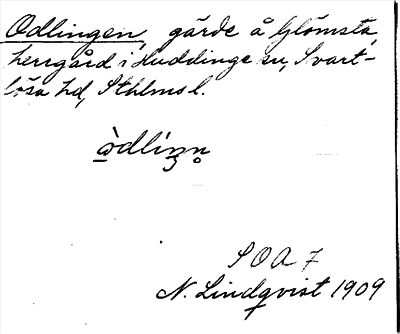 Odlingen, gärde å Glömsta,
herrgård i Huddinge sn, Svart-
lösa hd, Sthlms l.
òdlíŋn̥
SOA 7
N. Lindqvist 1909